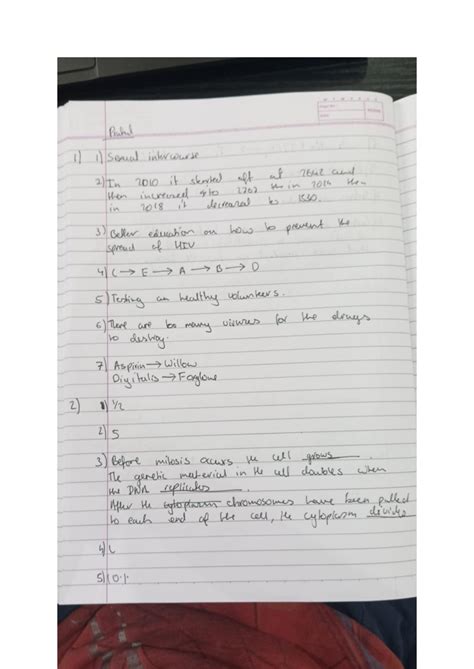 1) 1) Sexual intercourse
2) In 2010 it started off at 2642 and
then increased to 2707 in 2014 then
in 2018 it decreased to
3) Better education on how to prevent the
spread of HIV
4) C → E → A → B → D
5) Testing on healthy volunteers.
6) There are too many viruses for the drugs
to destroy.
7) Aspirin → Willow
Digitalis → Foxglove
2) 1) 1/2
2) 5
3) Before mitosis occurs the cell grows.
The genetic material in the cell doubles when
the DNA replicates
After the cytoplasm chromosomes have been pulled
to each end of the cell, the cytoplasm divides
4)
5) 10%